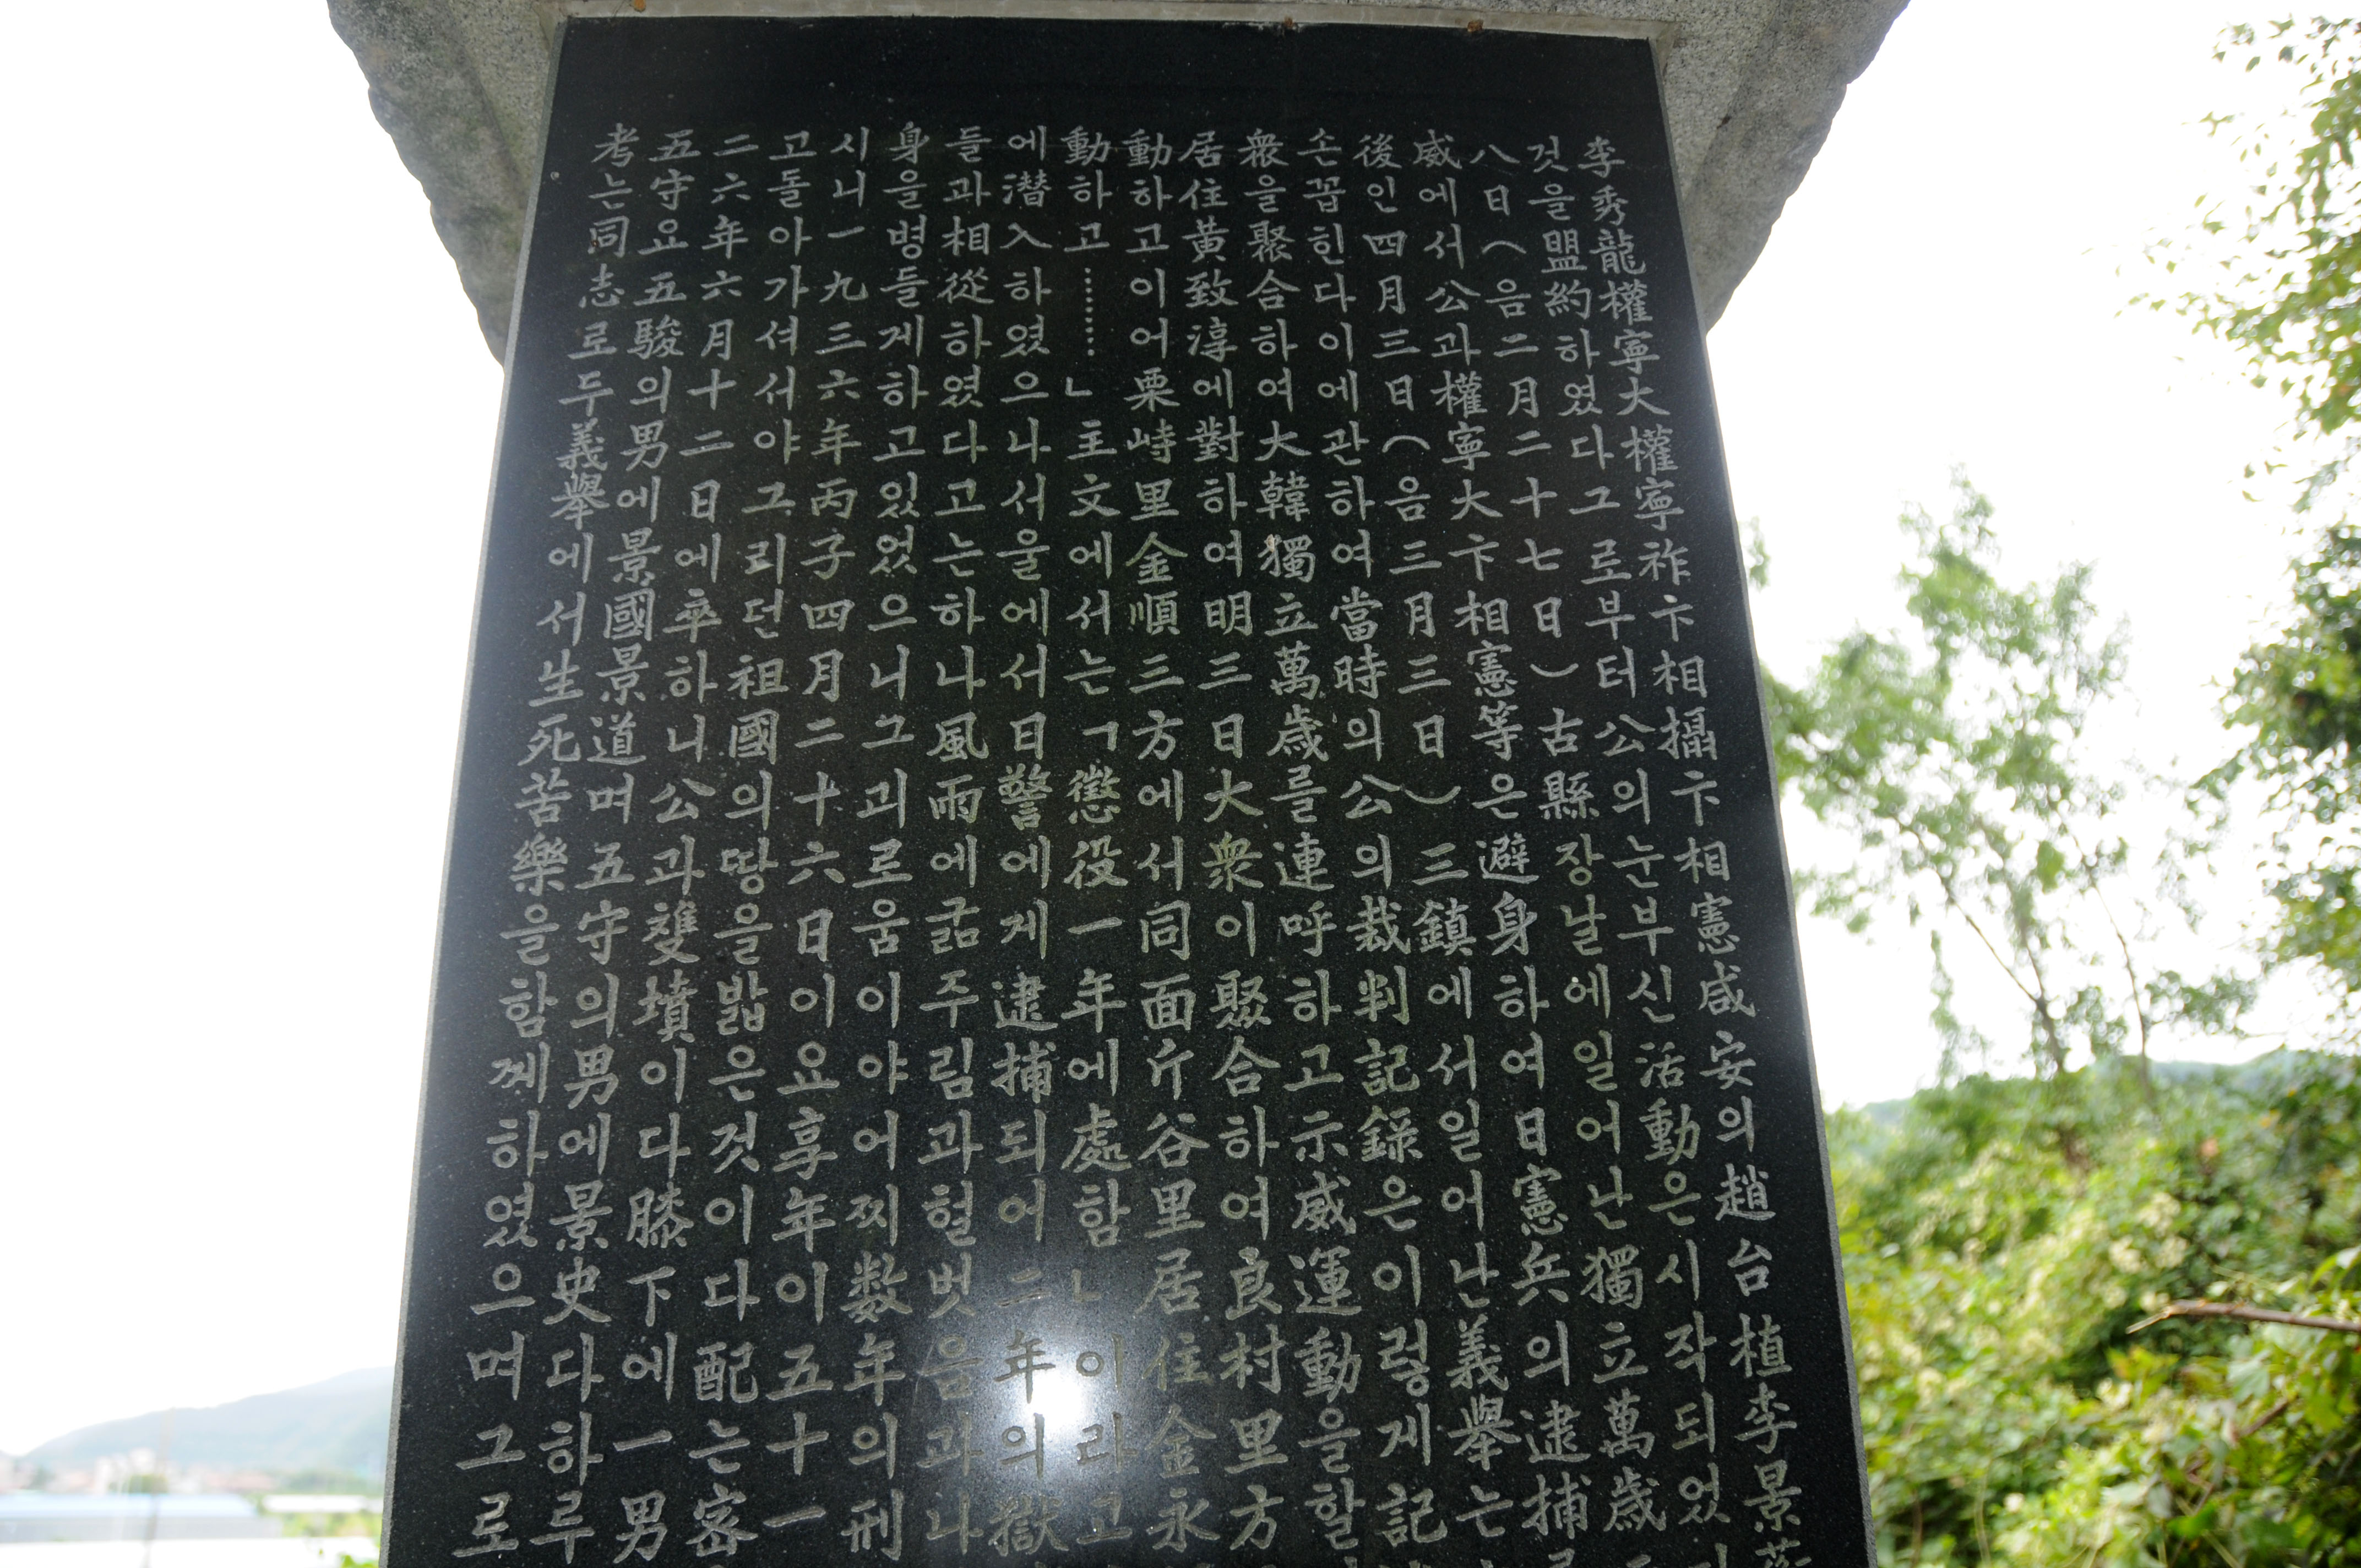 李秀龍權寧大權寧祚卞相攝卞相憲咸安의趙台植李景
것을盟約하였다그로부터公의눈부신活動은시작되었
八日(음二月二十七日)古縣장날에일어난獨立萬歲
威에서公과權寧大卞相憲等은避身하여日憲兵의逮捕
後인四月三日(음三月三日)三鎭에서일어난義擧는
손꼽힌다이에관하여當時의公의裁判記錄은이렇게記
衆을聚合하여大韓獨立萬歲를連呼하고示威運動을할
居住黃致淳에對하여明三日大衆이聚合하여良村里方
動하고이어栗峙里金順三方에서同面斤谷里居住金永
動하고………」主文에서는「懲役一年에處함」이라고
에潜入하였으나서울에서日警에게逮捕되어二年의獄
들과相從하였다고는하나風雨에굶주림과헐벗음과나
身을병들게하고있었으니그괴로움이야어찌数年의刑
시니一九三六年丙子四月二十六日이요享年이五十一
고돌아가셔서야그리던祖國의땅을밟은것이다配는密
二六年六月十二日에卒하니公과雙墳이다膝下에一男
五守요五駿의男에景國景道며五守의男에景史다하루
考는同志로두義擧에서生死苦樂을함께하였으며그로